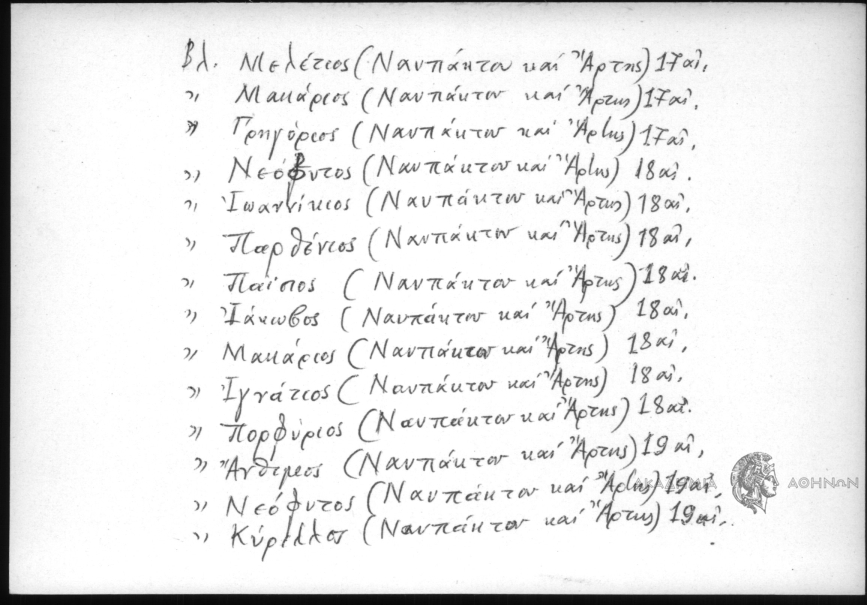 Βλ. Μελέτιος (Ναυπάκτου καί Ἄρτης) 17 αἰ.
〃 Μακάριος (Ναυπάκτου καί Ἄρτης) 17 αἰ.
〃 Γρηγόριος (Ναυπάκτου καί Ἄρτης) 17 αἰ.
〃 Νεόφυτος (Ναυπάκτου καί Ἄρτης) 18 αἰ.
〃 Ἰωαννίκιος (Ναυπάκτου καί Ἄρτης) 18 αἰ.
〃 Παρθένιος (Ναυπάκτου καί Ἄρτης) 18 αἰ.
〃 Παΐσιος (Ναυπάκτου καί Ἄρτης) 18 αἰ.
〃 Ἰάκωβος (Ναυπάκτου καί Ἄρτης) 18 αἰ.
〃 Μακάριος (Ναυπάκτου καί Ἄρτης) 18 αἰ.
〃 Ἰγνάτιος (Ναυπάκτου καί Ἄρτης) 18 αἰ.
〃 Πορφύριος (Ναυπάκτου καί Ἄρτης) 18 αἰ.
〃 Ἄνθιμος (Ναυπάκτου καί Ἄρτης) 19 αἰ.
〃 Νεόφυτος (Ναυπάκτου καί Ἄρτης) 19 αἰ.
〃 Κύριλλος (Ναυπάκτου καί Ἄρτης) 19 αἰ.
ΑΚΑΔΗΜΙΑ ΑΘΗΝΩΝ